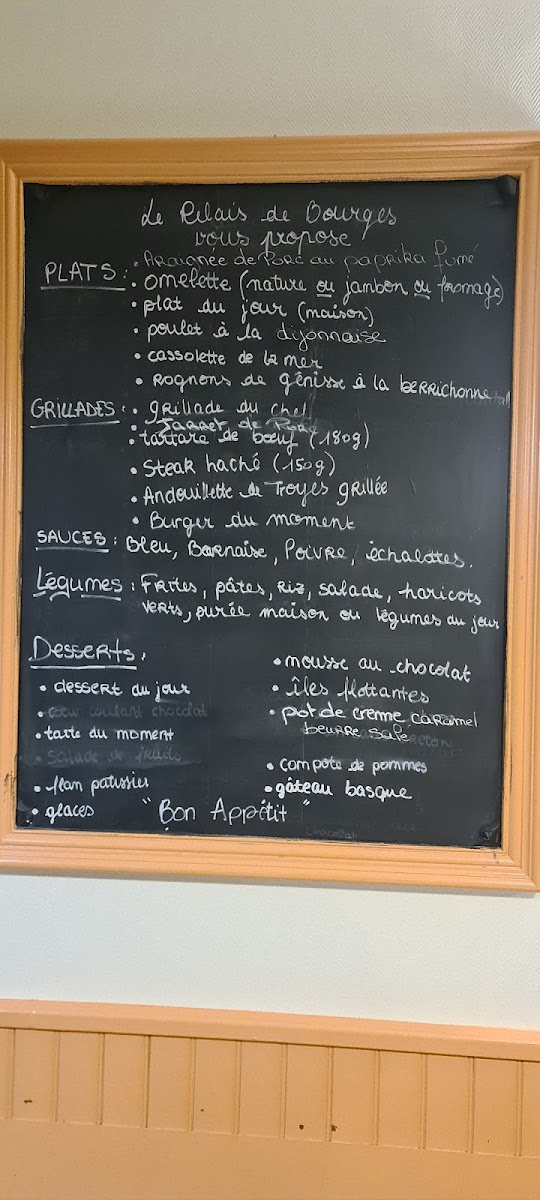 Le Relais de Bourges
vous propose
• Araignée de Porc au paprika fumé
PLATS : • omelette (nature ou jambon ou fromage)
• plat du jour (maison)
• poulet à la dijonnaise
• cassolette de la mer
• Rognons de génisse à la berrichonne
GRILLADES : • grillade du chef
• Jarret de Porc
• tartare de bœuf (180g)
• Steak haché (150g)
• Andouillette de Troyes grillée
• Burger du moment
SAUCES : Bleu, Bearnaise, Poivre, échalottes.
Légumes : Frites, pâtes, Riz, salade, haricots
verts, purée maison ou légumes du jour
Desserts,
• dessert du jour
• cœur coulant chocolat
• tarte du moment
• salade de fruits
• flan patissier
• glaces
• mousse au chocolat
• îles flottantes
• pot de creme caramel
beurre salé
• compote de pommes
• gâteau basque
" Bon Appétit "